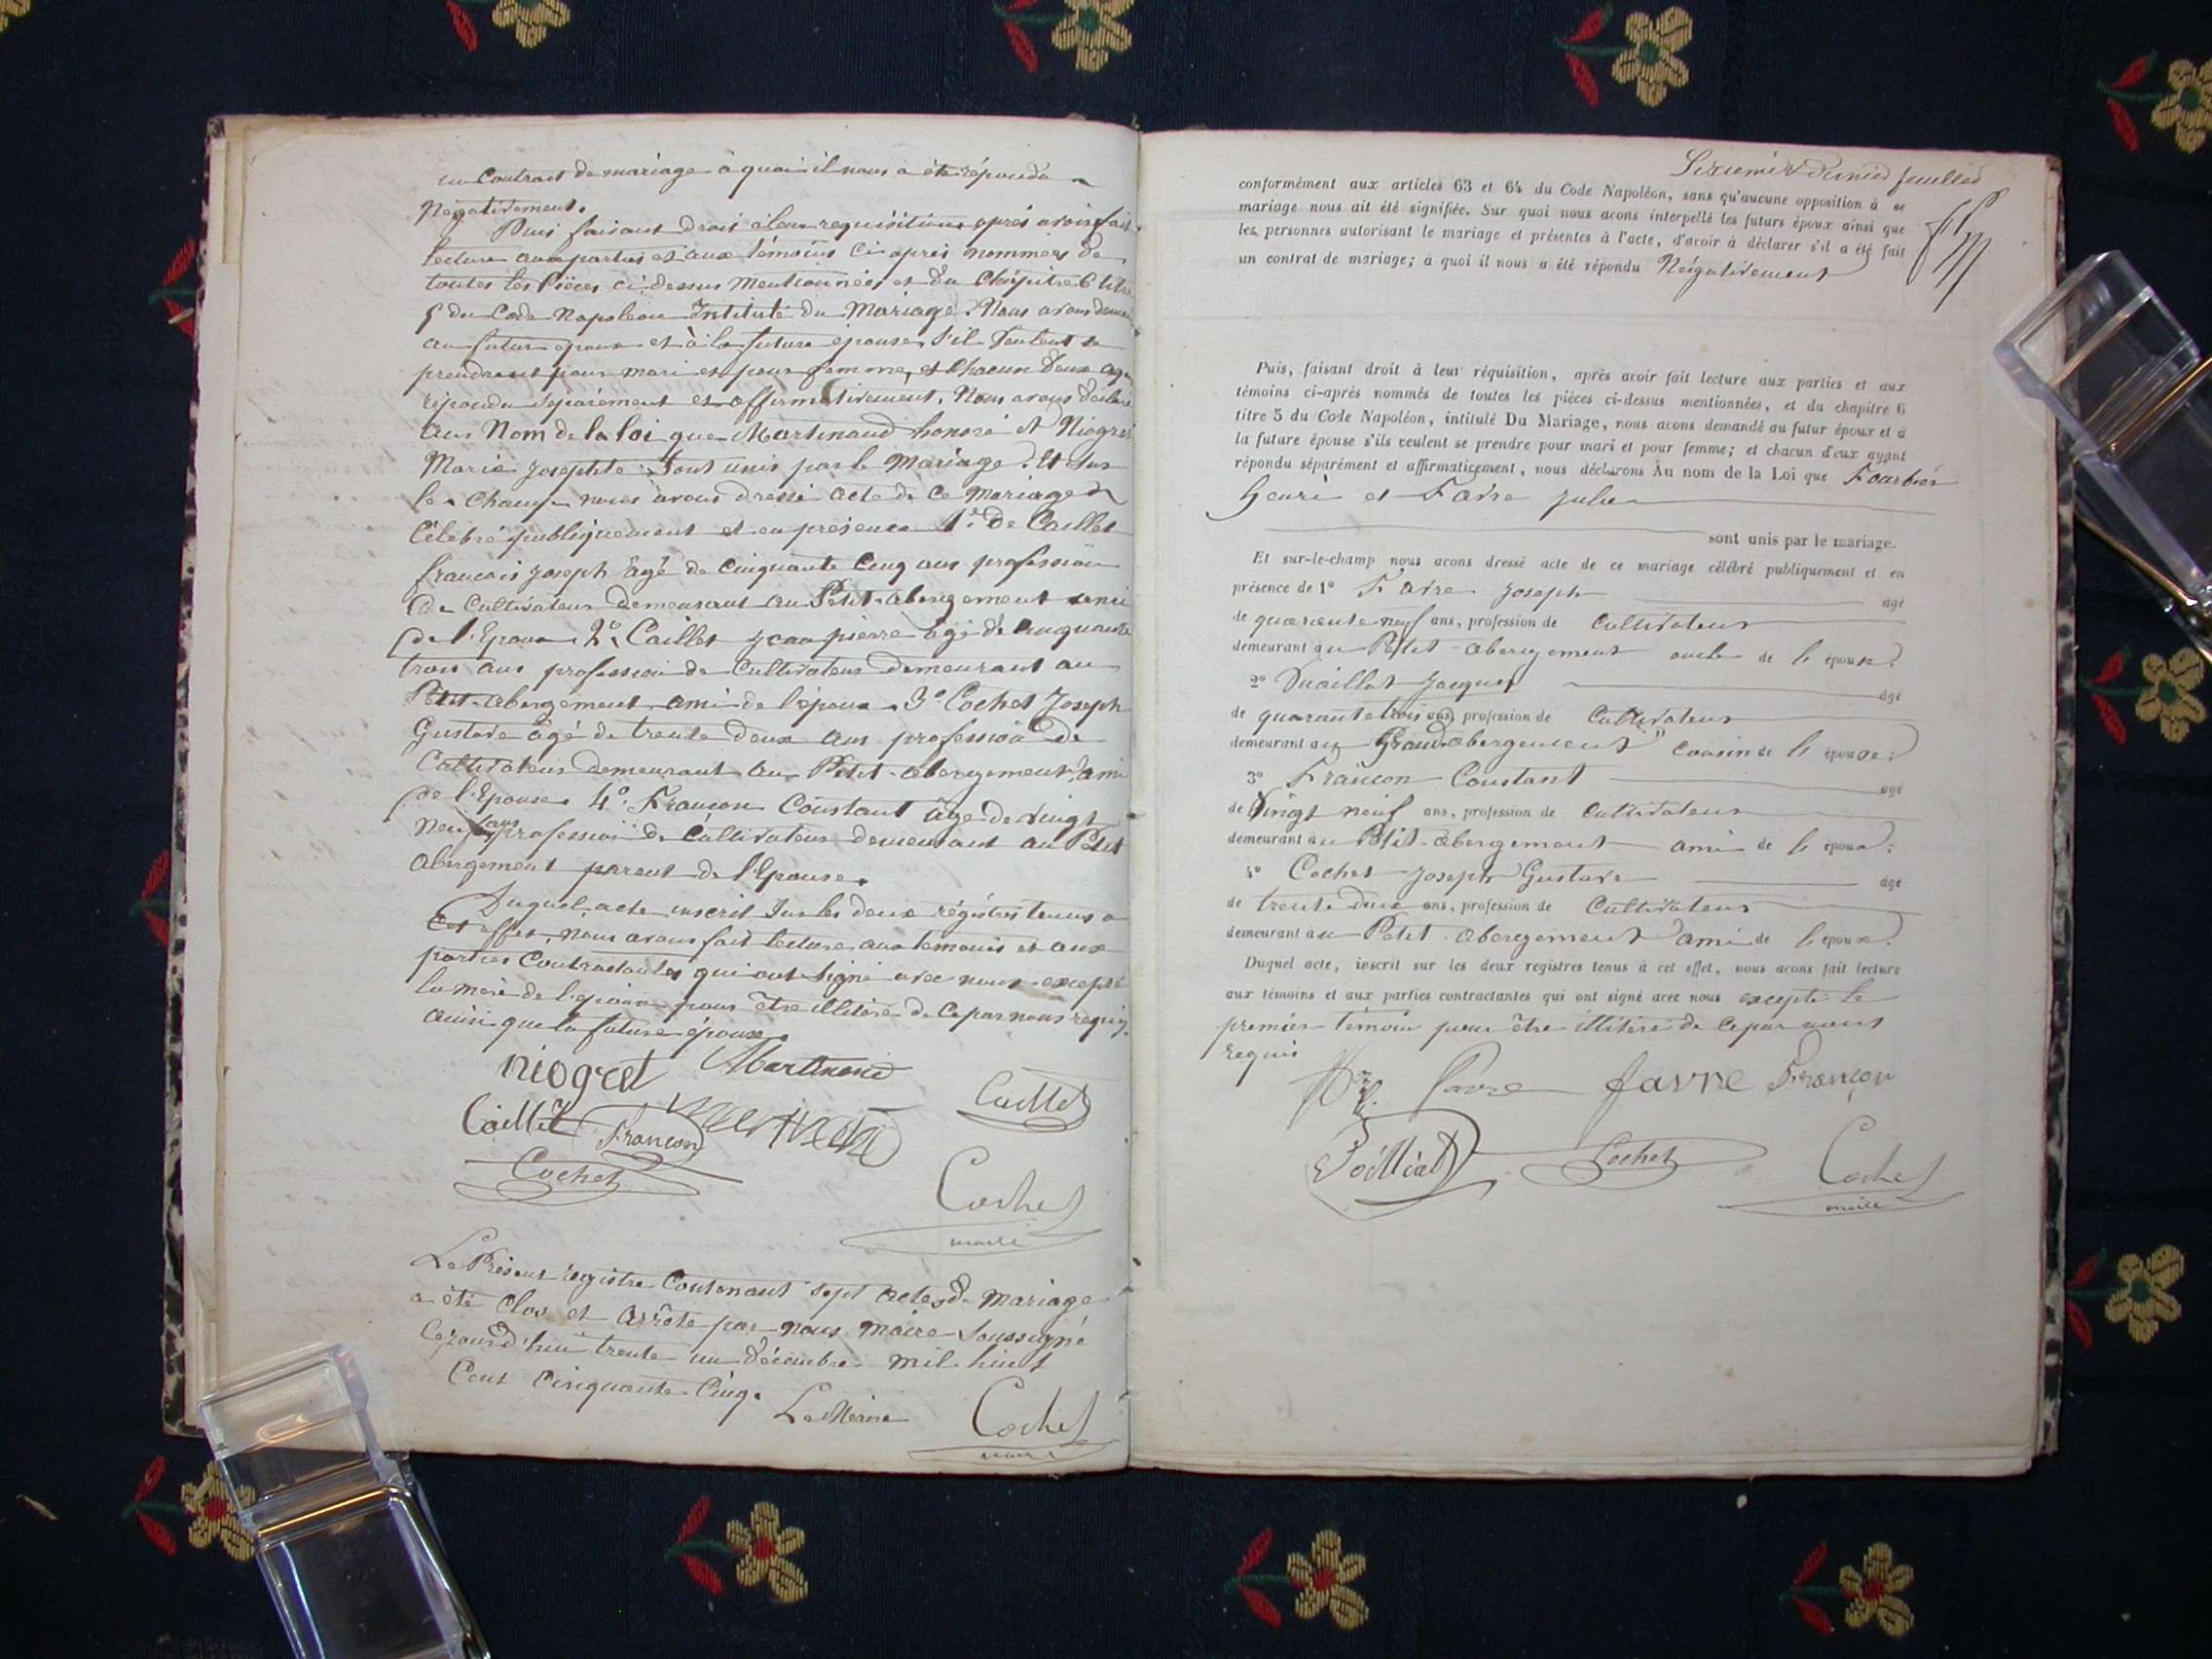 un Contrat de mariage à quoi il nous a été répondu
Négativement.
Puis faisant droit à leur requisition après avoir fait
lecture aux parties et aux témoins ci après nommés de
toutes les pièces ci dessus mentionnées et du Chapitre 6 titre
5 du Code Napoléon Intitulé du Mariage. Nous avons demandé
au futur époux et à la future épouse s'il veulent se
prendre pour mari et pour femme, et chacun deux ayant
répondu séparément et affirmativement. Nous avons déclaré
au Nom de la loi que Martinand honoré et Niogret
Marie Josephte Sont unis par le Mariage. Et sur
le Champ nous avons dressé acte de ce mariage
Célébré publiquement et en présence 1° de Caillet
francois joseph âgé de Cinquante Cinq ans profession
de Cultivateur demeurant au Petit-abergement ami
de l'Epoux 2° Caillet jean pierre âgé de cinquante
trois ans profession de Cultivateur demeurant au
Petit-abergement ami de l'époux 3° Cochet Joseph
Gustave âgé de trente deux ans profession de
Cultivateur demeurant au Petit-abergement ami
de l'Epouse 4° Francon Constant âgé de vingt
neuf ans profession de Cultivateur demeurant au Petit
abergement parent de l'Epouse.
Duquel acte inscrit sur les deux régistres tenus à
Cet effet, nous avons fait lecture aux temoins et aux
parties Contractantes qui ont signé avec nous excepté
la mère de l'époux pour être illitéré de ce par nous requis
ainsi que la future épouse.
niogret Martinand
Caillet Francon Caillet
Cochet
Cochet
maire
Le Présent régistre Contenant sept actes de mariage
a été Clos et Arrôté par nous maire Soussigné
Cejourd'hui trente un décembre mil huit
Cent Cinquante Cinq.
Le Maire Cochet
maire
Sixième & dernier feuillet
conformément aux articles 63 et 64 du Code Napoléon, sans qu'aucune opposition à ce
mariage nous ait été signifiée. Sur quoi nous avons interpellé les futurs époux ainsi que
les personnes autorisant le mariage et présentes à l'acte, d'avoir à déclarer s'il a été fait
un contrat de mariage; à quoi il nous a été répondu Négativement
Puis, faisant droit à leur réquisition, après avoir fait lecture aux parties et aux
témoins ci-après nommés de toutes les pièces ci-dessus mentionnées, et du chapitre 6
titre 5 du Code Napoléon, intitulé Du Mariage, nous avons demandé au futur époux et à
la future épouse s'ils veulent se prendre pour mari et pour femme; et chacun d'eux ayant
répondu séparément et affirmativement, nous déclarons Au nom de la Loi que Fourbier
henri et Favre julie
sont unis par le mariage.
Et sur-le-champ nous avons dressé acte de ce mariage célébré publiquement et en
présence de 1° Favre joseph âgé
de quarante neuf ans, profession de Cultivateur
demeurant au Petit-abergement oncle de l'épouse.
2° jacques âgé
de quarante trois ans, profession de Cultivateur
demeurant au Grand abergement cousin de l'épouse.
3° Francon Constant âgé
de Vingt neuf ans, profession de Cultivateur
demeurant au Petit-abergement ami de l'époux:
4° Cochet joseph Gustave âgé
de trente deux ans, profession de Cultivateur
demeurant au Petit-abergement ami de l'époux.
Duquel acte, inscrit sur les deux registres tenus à cet effet, nous avons fait lecture
aux témoins et aux parties contractantes qui ont signé avec nous excepté le
premier témoin pour être illitéré de ce par nous
requis
Favre favre Françon
Cochet Cochet
maire